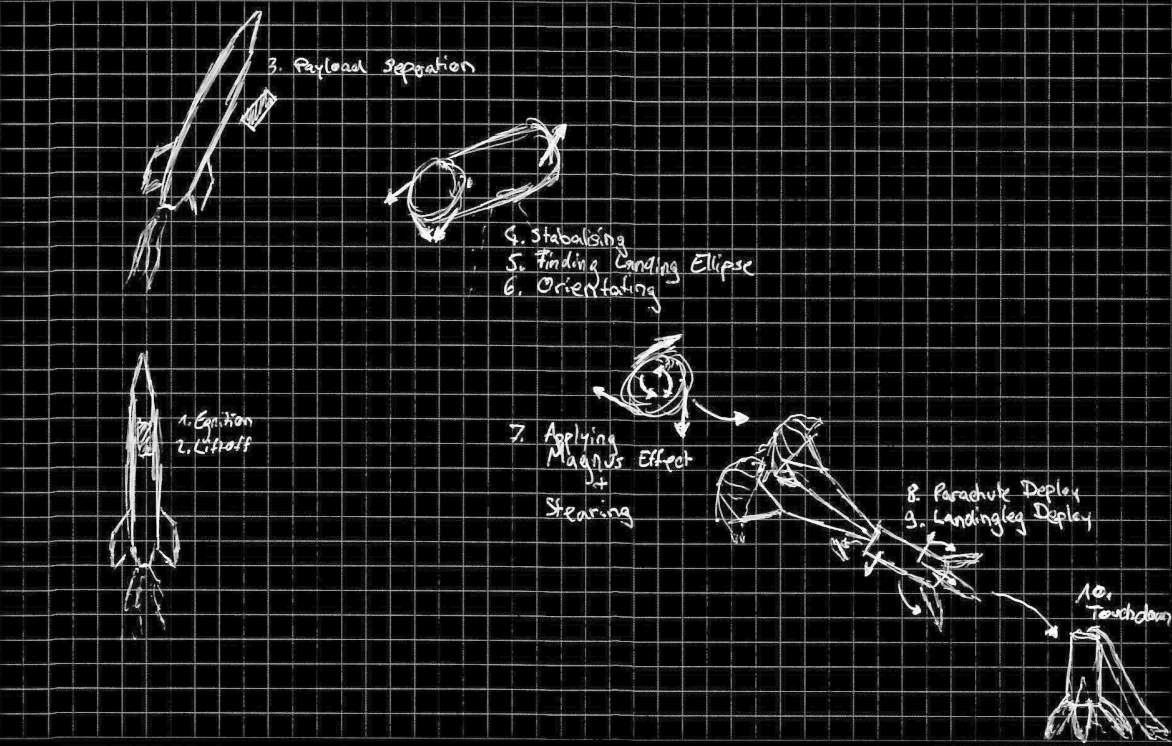 3. Payload Seperation
4. Stabalising
5. Finding Landing Ellipse
6. Orientating
1. Egnition
2. Liftoff
7. Applying
Magnus Effect
+
Stearing
8. Parachute Deploy
9. Landingleg Deploy
10.
Touchdown